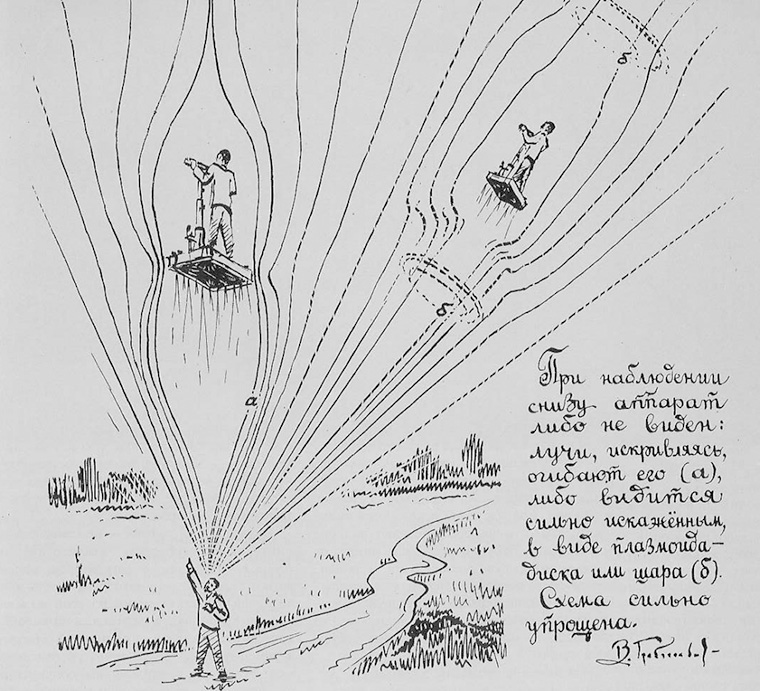 б
а
б
При наблюдении
снизу аппарат
либо не виден:
лучи, искривляясь,
огибают его (а),
либо видится
сильно искажённым,
в виде плазмоида-
диска или шара (б).
Схема сильно
упрощена.